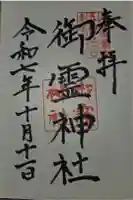 奉拝
御霊神社
令和七年十月十一日